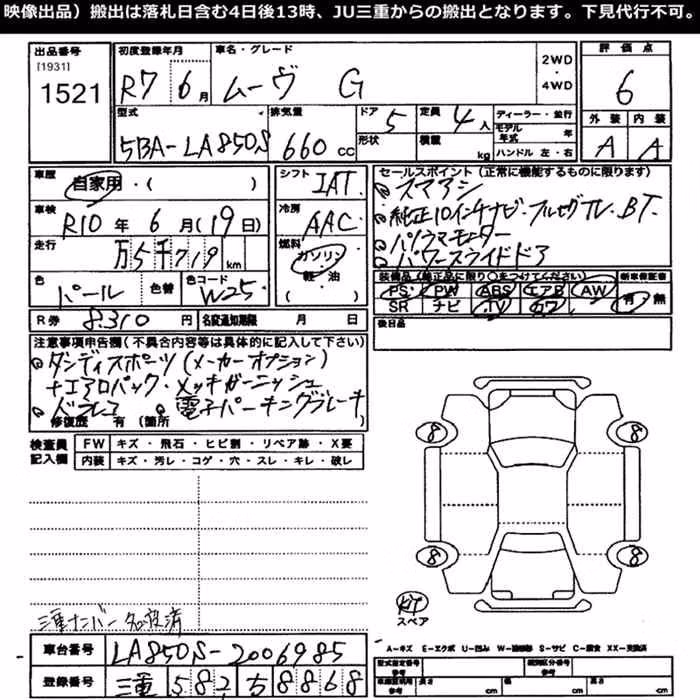 映像出品）搬出は落札日含む4日後13時、JU三重からの搬出となります。下見代行不可。
出品番号
[1931]
1521
初度登録年月
R7 6月
車名・グレード
ムーヴ G
2WD
・
4WD
評価点
6
外装 内装
A A
型式
5BA-LA850S
排気量
660 cc
ドア
5
形状
定員
4人
積載
kg
ディーラー・並行
モデル年式 年
ハンドル 左・右
車歴
自家用・( )
シフト
IAT
車検
R10年6月(19日)
冷房
AAC
走行
万5千719km
燃料
ガソリン
軽油
色
パール
色替
色コード
W25
R券 8310円
名変通知期限 月 日
セールスポイント（正常に機能するものに限ります）
スマアシ
純正10インチナビ・フルセグTV・BT・
パノラマモニター
パワースライドドア
装備品（純正品に限り○をつけてください）
新車保証書
PS PW ABS エアB AW
SR ナビ TV カワ
有・無
後日品
注意事項申告欄（不具合内容等は具体的に記入して下さい）
ダンディスポーツ（メーカーオプション）
+エアロパック・メッキガーニッシュ
ドラレコ 電子パーキングブレーキ
修復歴 有（箇所
検査員記入欄
FW キズ・飛石・ヒビ割・リペア跡・X要
内装 キズ・汚レ・コゲ・穴・スレ・キレ・破レ
8 8
8 8
スペア
三重ナンバー名変済
車台番号 LA850S-2006985
登録番号 三重 582 ち 8868
A-キズ E-エクボ U-凹み W-補修跡 S-サビ C-腐食 XX-交換済
型式指定番号
類別区分番号
車庫証明用
参考
長さ cm
cm
cm